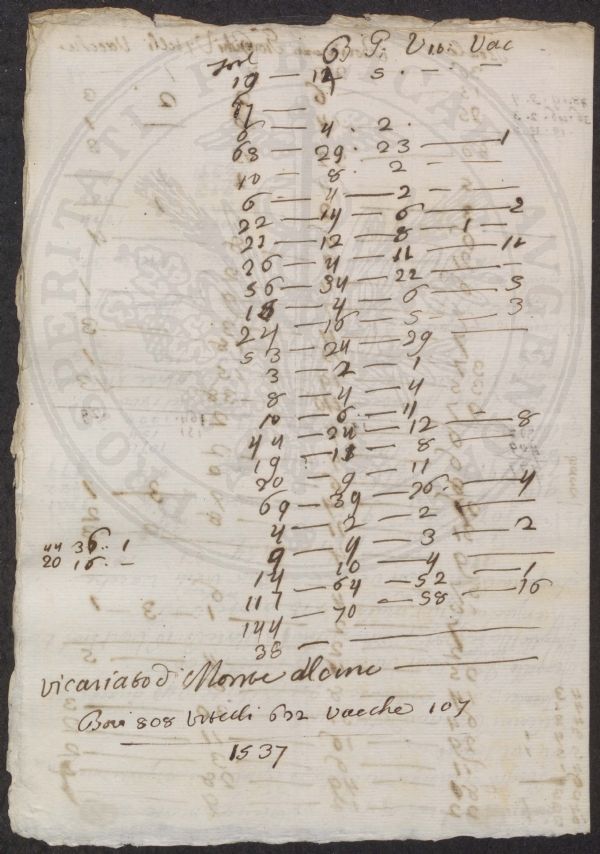 B P. Vit: Vac
19 — 12 5. —
17 —
6 — 4. 2.
68 — 29. 23 — 1
10 — 8. 2 —
6 — 4 — 2 —
22 — 14 — 6 — 2
21 — 12 — 8 — 1 —
26 — 4 — 11 — 11
56 — 34 — 22 —
15 — 4 — 6 — 3
24 — 16 — 5 — 3
53 — 24 — 29 —
3 — 2 — 1
8 — 4 — 4
10 — 6 — 4
44 — 24 — 12 — 8
19 — 11 — 8 —
20 — 9 — 11
69 — 39 — 26 — 4
4 — 2 — 2 —
9 — 4 — 3 — 2
44 36.. 1
20 16.. —
14 — 10 — 4 —
117 — 64 — 52 — 1
144 — 70 — 58 — 16
38 —
Vicariato di Monte alcino
Bovi 808 Vitelli 622 Vacche 107
1537
PROSPERITATI PUBLICAE AUGENDAE